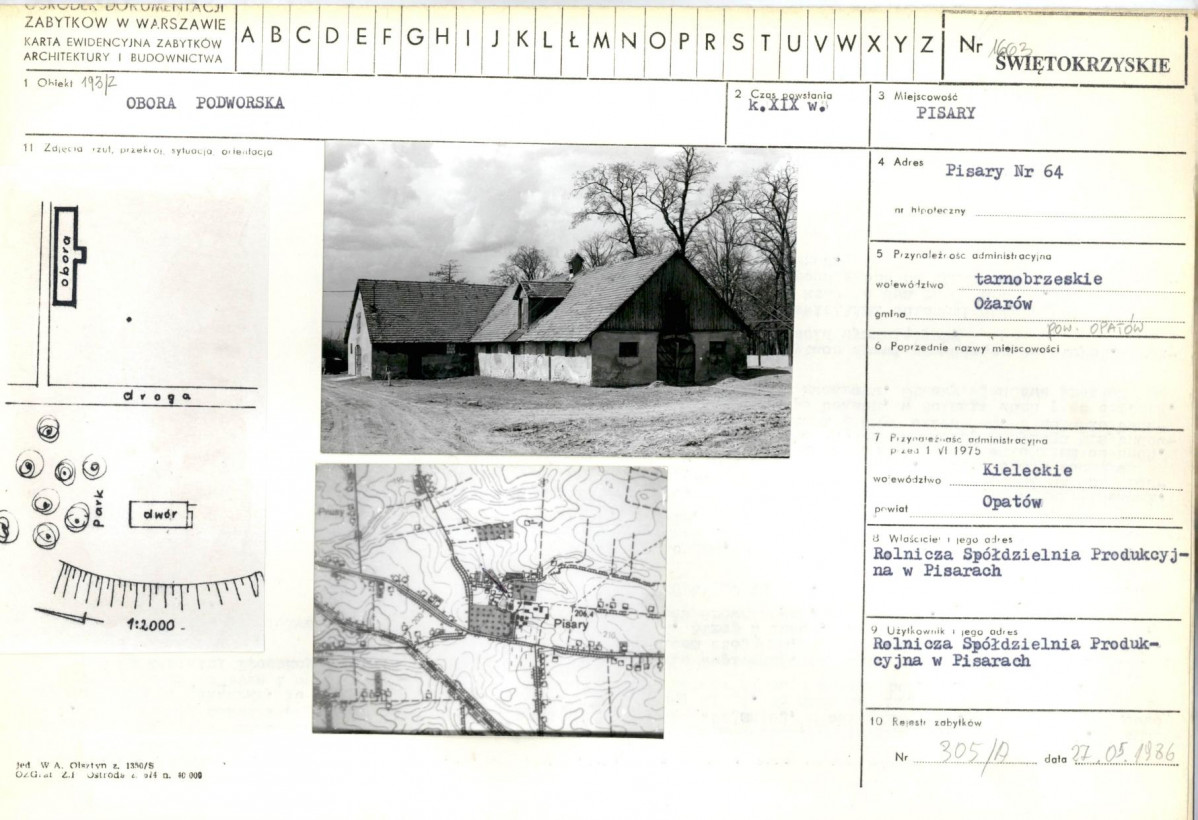 OŚRODEK DOKUMENTACJI
ZABYTKÓW W WARSZAWIE
KARTA EWIDENCYJNA ZABYTKÓW
ARCHITEKTURY I BUDOWNICTWA
A B C D E F G H I J K L Ł M N O P R S T U V W X Y Z
Nr 1603
ŚWIĘTOKRZYSKIE
1 Obiekt 193/2
OBORA PODWORSKA
2 Czas powstania
k.XIX w.
3 Miejscowość
PISARY
11 Zdjęcia rzut, przekrój, sytuacja, orientacja
obora
droga
Park
dwór
1:2000
206,4
Pisary
4 Adres
Pisary Nr 64
nr hipoteczny
5 Przynależność administracyjna
województwo tarnobrzeskie
gmina Ożarów
POW. OPATÓW
6 Poprzednie nazwy miejscowości
7 Przynależność administracyjna
przed 1 VI 1975
województwo Kieleckie
powiat Opatów
8 Właściciel i jego adres
Rolnicza Spółdzielnia Produkcyj-
na w Pisarach
9 Użytkownik i jego adres
Rolnicza Spółdzielnia Produk-
cyjna w Pisarach
10 Rejestr zabytków
Nr 305/A data 27.05.1986
W.A. Olsztyn z. 1350/S
Ostróda